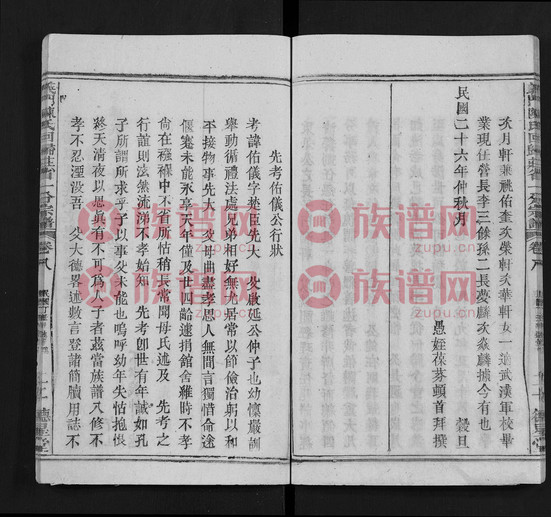 次月軒兼祧佑奎次榮軒次華軒女一適武漢軍校畢
業現任營長李三餘孫二長夢麟次煥麟據今有也
民國二十六年仲秋月　穀旦
愚姪葆芬頓首拜撰
先考佑儀公行狀
考諱佑儀字楚臣先大　父啟延公仲子也幼懷嚴訓
舉動循禮法處兄弟相好無尤居常以節儉治躬以和
平接物事先大　父母曲盡孝思人無間言獨惜命途
偃蹇未能永享天年僅及世四齡遽捐館舍維時不孝
尚在襁褓中不省所怙稍長常聞母氏述及　先考之
行誼則泫然流涕不孝始知　先考卽世有年誠如孔
子所謂所求乎子以事父未能也嗚呼幼年失怙抱恨
終天清夜以思眞有不可爲人子者茲當族譜八修不
孝不忍湮沒吾　父大德畧述數言登諸簡牘用誌不
義門陳氏回歸莊
宗譜
卷八
德星堂
族谱网
zupu.cn